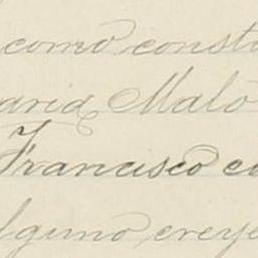 como consta
aria Maló
Francisco
lguno creye